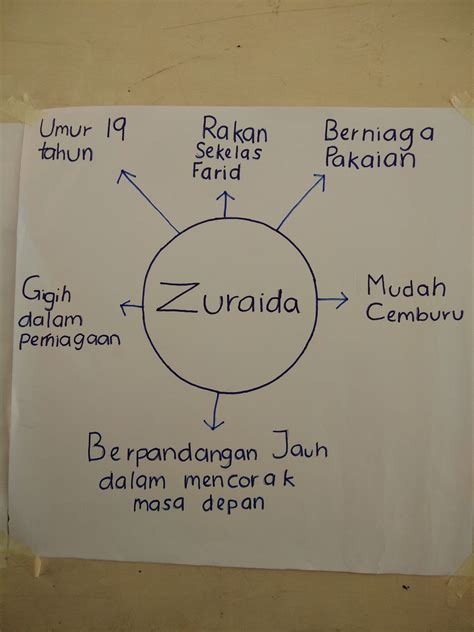 Umur 19
tahun
Rakan
Sekelas
Farid
Berniaga
Pakaian
Gigih
dalam
perniagaan
Zuraida
Mudah
Cemburu
Berpandangan Jauh
dalam mencorak
masa depan